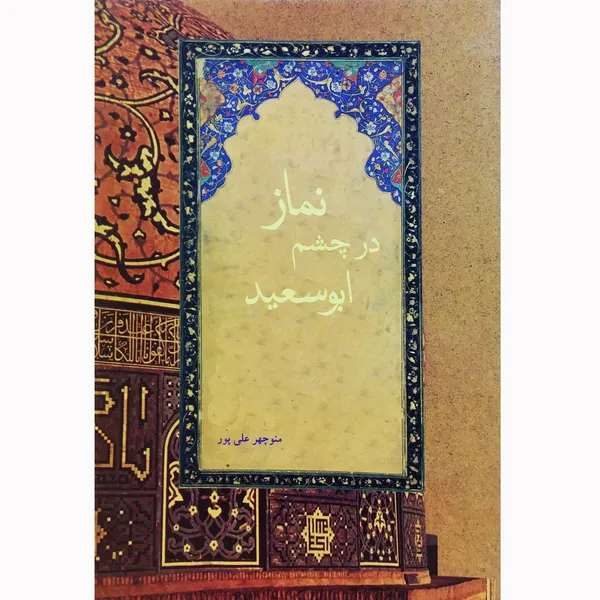 نماز
در چشم
ابوسعید
منوچهر علی پور